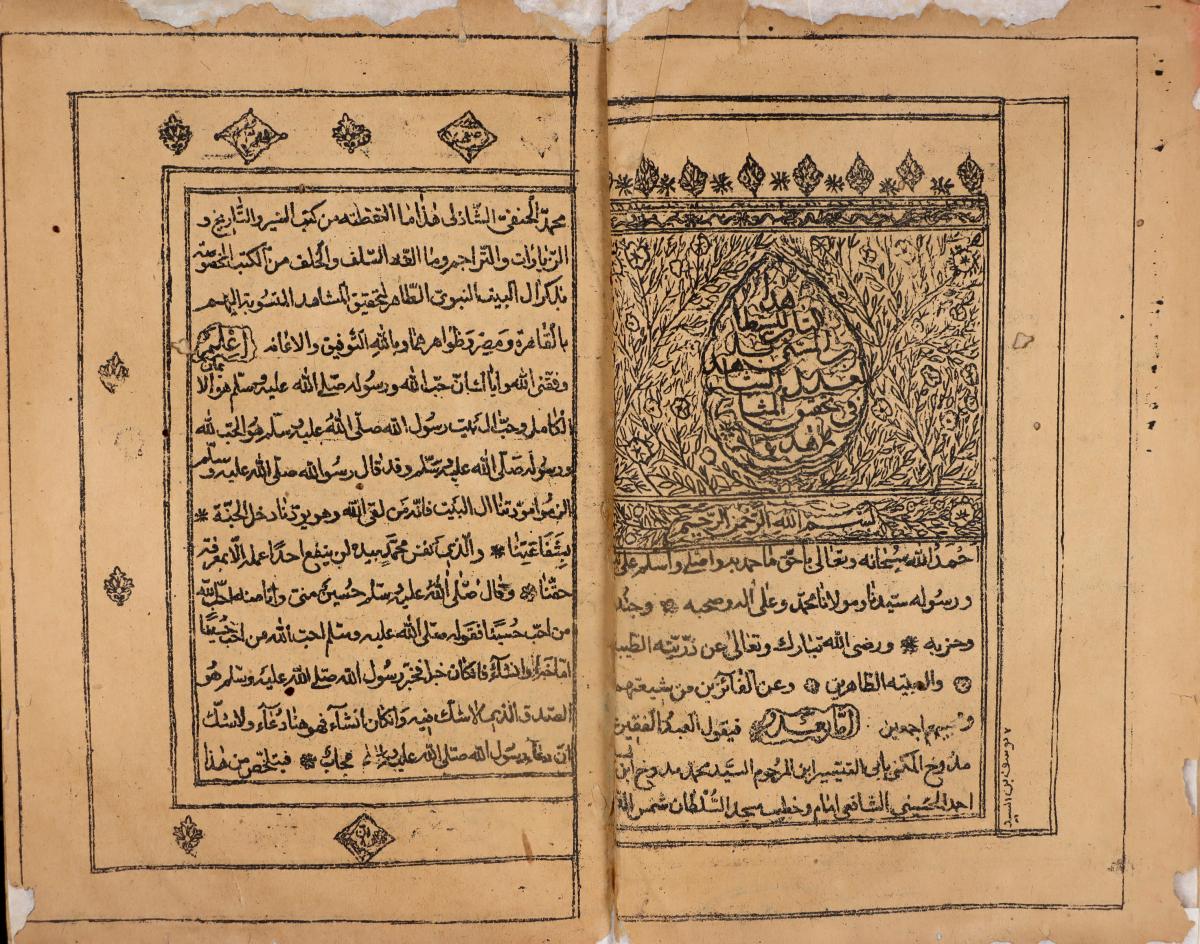 هذا
الكتاب المستطاب
المسمى بـ
العدل الشاهد
في تحقيق المشا
هد
بسم الله الرحمن الرحيم
حمد الله سبحانه وتعالى باحق ما حمد به واصلى واسلم على
ورسوله سيدنا ومولانا محمد وعلى اله وصحبه * وجند
وحزبه * ورضى الله تبارك وتعالى عن ذريته الطيبة
* واهل بيته الطاهرين * وعن الفائزين من شيعتهم
ومحبيهم اجمعين اما بعد فيقول العبد الفقير
مدوخ المكنى بابى القتيير ابن المرحوم السيد محمد مدوخ ابن
احمد الحسينى الشافعى امام وخطيب مسجد السلطان شمس الدين
محمد الحنفى الشاذلى هذا ما التقطته من كتب السير والتاريخ و
الزيارات والتراجم وما الفه السلف والخلف من الكتب المخصوصة
بذكر ال البيت النبوى الطاهر لتحقيق المشاهد المنسوبة اليهم
بالقاهرة ومصر وظواهرهما وبالله التوفيق والاعانه اعلم
وفقنى الله واياك ان حب الله ورسوله صلى الله عليه وسلم هو الا
يمان
الكامل وحب ال بيت رسول الله صلى الله عليه وسلم هو الحب لله
ورسوله صلى الله عليه وسلم وقد قال رسول الله صلى الله عليه وسلم
الزموا مودتنا ال البيت فانه من لقى الله وهو يودنا دخل الجنة *
بشفاعتنا * والذى نفس محمد بيده لن ينفع احدا عمله الا بمعرفة
حقنا * وقال صلى الله عليه وسلم حسين منى وانا منه احب الله
من احب حسينا فقوله صلى الله عليه وسلم احب الله من احب حسينا
اما خبر وانشاء فان كان خبرا فخبر رسول الله صلى الله عليه وسلم هو
الصدق الذى لا شك فيه وان كان انشاء فهو هنا دعاء ولا شك
ان دعاء رسول الله صلى الله عليه وسلم مجاب * فيتلخص من هذا